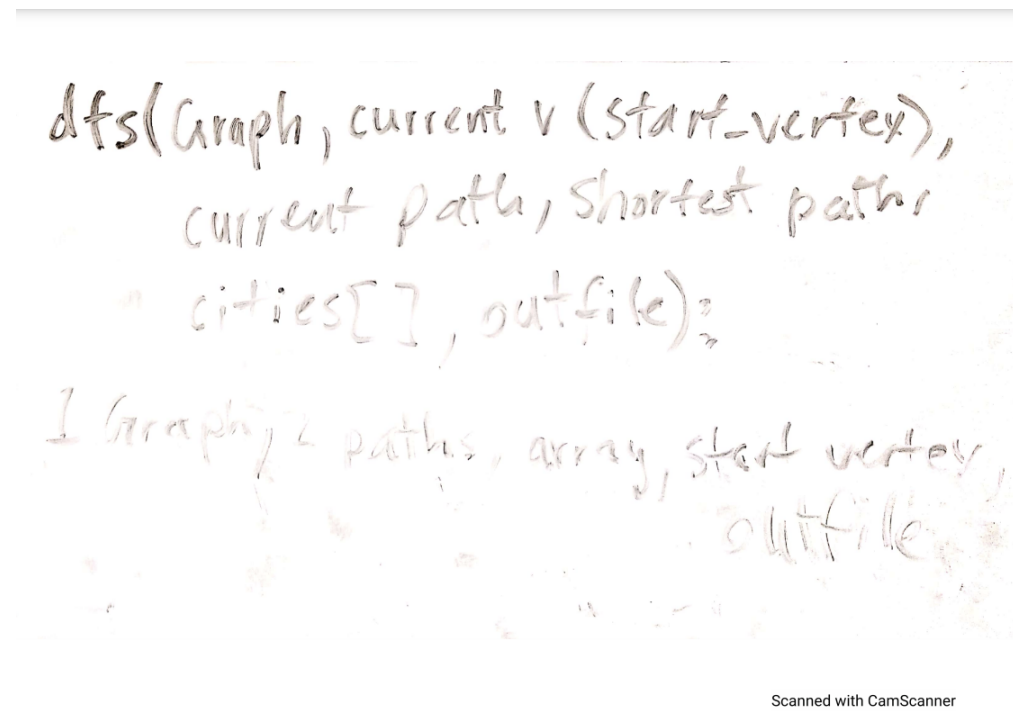 dfs(Graph, current v (start_vertex),
current path, shortest path,
cities[], outfile):
1 Graph, 2 paths, array, start vertex,
outfile
Scanned with CamScanner